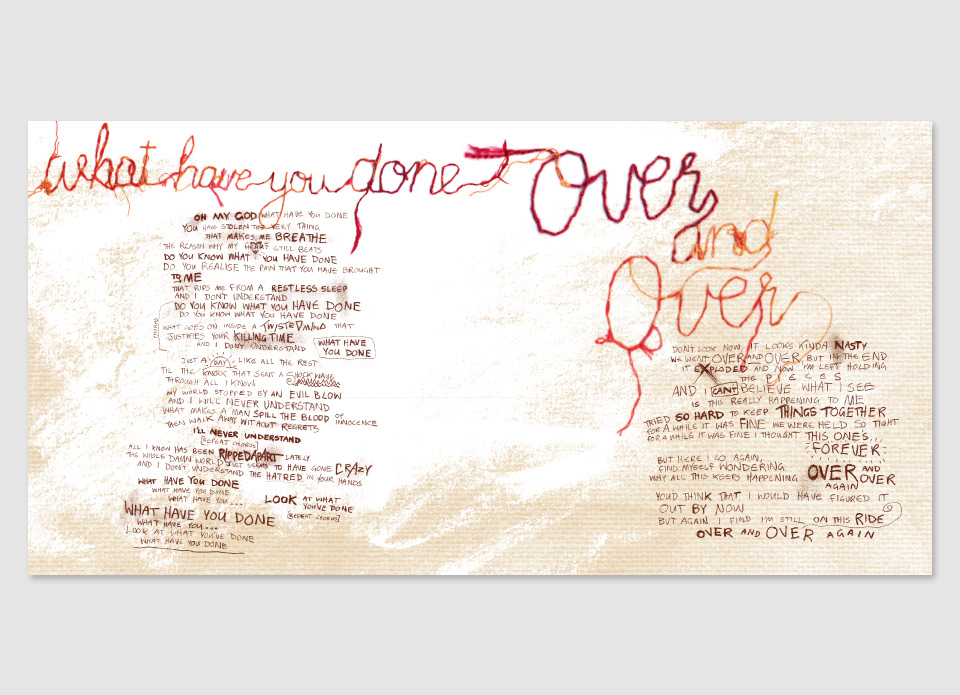 what have you done
OH MY GOD WHAT HAVE YOU DONE
YOU HAVE STOLEN THE VERY THING
THAT MAKES ME BREATHE
THE REASON WHY MY HEART STILL BEATS
DO YOU KNOW WHAT YOU HAVE DONE
DO YOU REALISE THE PAIN THAT YOU HAVE BROUGHT
TO ME
THAT RIPS ME FROM A RESTLESS SLEEP
AND I DON'T UNDERSTAND
DO YOU KNOW WHAT YOU HAVE DONE
DO YOU KNOW WHAT YOU HAVE DONE
WHAT GOES ON INSIDE A TWISTED MIND THAT
JUSTIFIES YOUR KILLING TIME
AND I DON'T UNDERSTAND
WHAT HAVE
YOU DONE
JUST A DAY LIKE ALL THE REST
TIL THE KNOCK THAT SENT A SHOCK WAVE
THROUGH ALL I KNOW
MY WORLD STOPPED BY AN EVIL BLOW
AND I WILL NEVER UNDERSTAND
WHAT MAKES A MAN SPILL THE BLOOD OF
INNOCENCE
THEN WALK AWAY WITHOUT REGRETS
I'LL NEVER UNDERSTAND
[REPEAT CHORUS]
ALL I KNOW HAS BEEN RIPPED APART LATELY
THE WHOLE DAMN WORLD JUST SEEMS TO HAVE GONE CRAZY
AND I DON'T UNDERSTAND THE HATRED IN YOUR HANDS
WHAT HAVE YOU DONE
WHAT HAVE YOU DONE
WHAT HAVE YOU...
LOOK AT WHAT
YOU'VE DONE
[REPEAT CHORUS]
WHAT HAVE YOU DONE
WHAT HAVE YOU...
LOOK AT WHAT YOU'VE DONE
WHAT HAVE YOU DONE
Over
and
Over
DON'T LOOK NOW, IT LOOKS KINDA NASTY
WE WENT OVER AND OVER BUT IN THE END
IT EXPLODED AND NOW I'M LEFT HOLDING
THE PIECES
AND I CAN'T BELIEVE WHAT I SEE
IS THIS REALLY HAPPENING TO ME
TRIED SO HARD TO KEEP THINGS TOGETHER
FOR A WHILE IT WAS FINE WE WERE HELD SO TIGHT
FOR A WHILE IT WAS FINE I THOUGHT THIS ONE'S...
FOREVER
BUT HERE I GO AGAIN,
FIND MYSELF WONDERING
WHY ALL THIS KEEPS HAPPENING OVER AND
OVER
AGAIN
YOU'D THINK THAT I WOULD HAVE FIGURED IT
OUT BY NOW
BUT AGAIN I FIND I'M STILL ON THIS RIDE
OVER AND OVER AGAIN